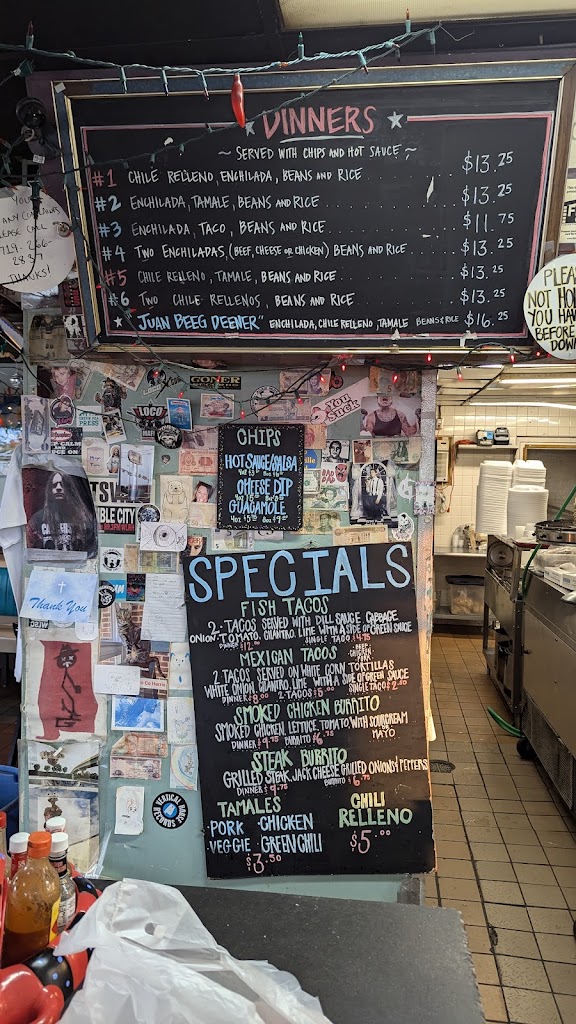 DINNERS
~ SERVED WITH CHIPS AND HOT SAUCE ~
#1 CHILE RELLENO, ENCHILADA, BEANS AND RICE $13.25
#2 ENCHILADA, TAMALE, BEANS AND RICE $13.25
#3 ENCHILADA, TACO, BEANS AND RICE $11.75
#4 TWO ENCHILADAS, (BEEF, CHEESE OR CHICKEN) BEANS AND RICE $13.25
#5 CHILE RELLENO, TAMALE, BEANS AND RICE $13.25
#6 TWO CHILE RELLENOS, BEANS AND RICE $13.25
JUAN BEEG DEENER" ENCHILADA, CHILE RELLENO, TAMALE BEANS & RICE $16.25
YOU
ANY
CALL
719-266-
2837
THANKS!
PLEA
NOT HO
YOU HAV
BEFORE
DOW
GONER
LOCO
You
Suck
CHIPS
HOT SAUCE/SALSA
CHEESE DIP
GUAGAMOLE
BLE CITY
Thank You
VERTICAL
RECORDS
SPECIALS
FISH TACOS
2 - TACOS SERVED WITH DILL SAUCE CABBAGE
ONION, TOMATO, CILANTRO, LIME WITH A SIDE OF GREEN SAUCE
DINNER $12.00 SINGLE TACO $4.75
MEXICAN TACOS
2 TACOS SERVED ON WHITE CORN TORTILLAS
WHITE ONION, CILANTRO, LIME WITH A SIDE OF GREEN SAUCE
DINNER $8.00 2 TACOS $5.00 SINGLE TACO $2.50
SMOKED CHICKEN BURRITO
SMOKED CHICKEN LETTUCE TOMATO WITH SOUR CREAM
DINNER $9.75 BURRITO $6.75 MAYO
STEAK BURRITO
GRILLED STEAK, JACK CHEESE GRILLED ONIONS/PEPPERS
DINNER $9.75 BURRITO $6.75
TAMALES
PORK CHICKEN
VEGGIE GREEN CHILI
$3.50
CHILI
RELLENO
$5.00